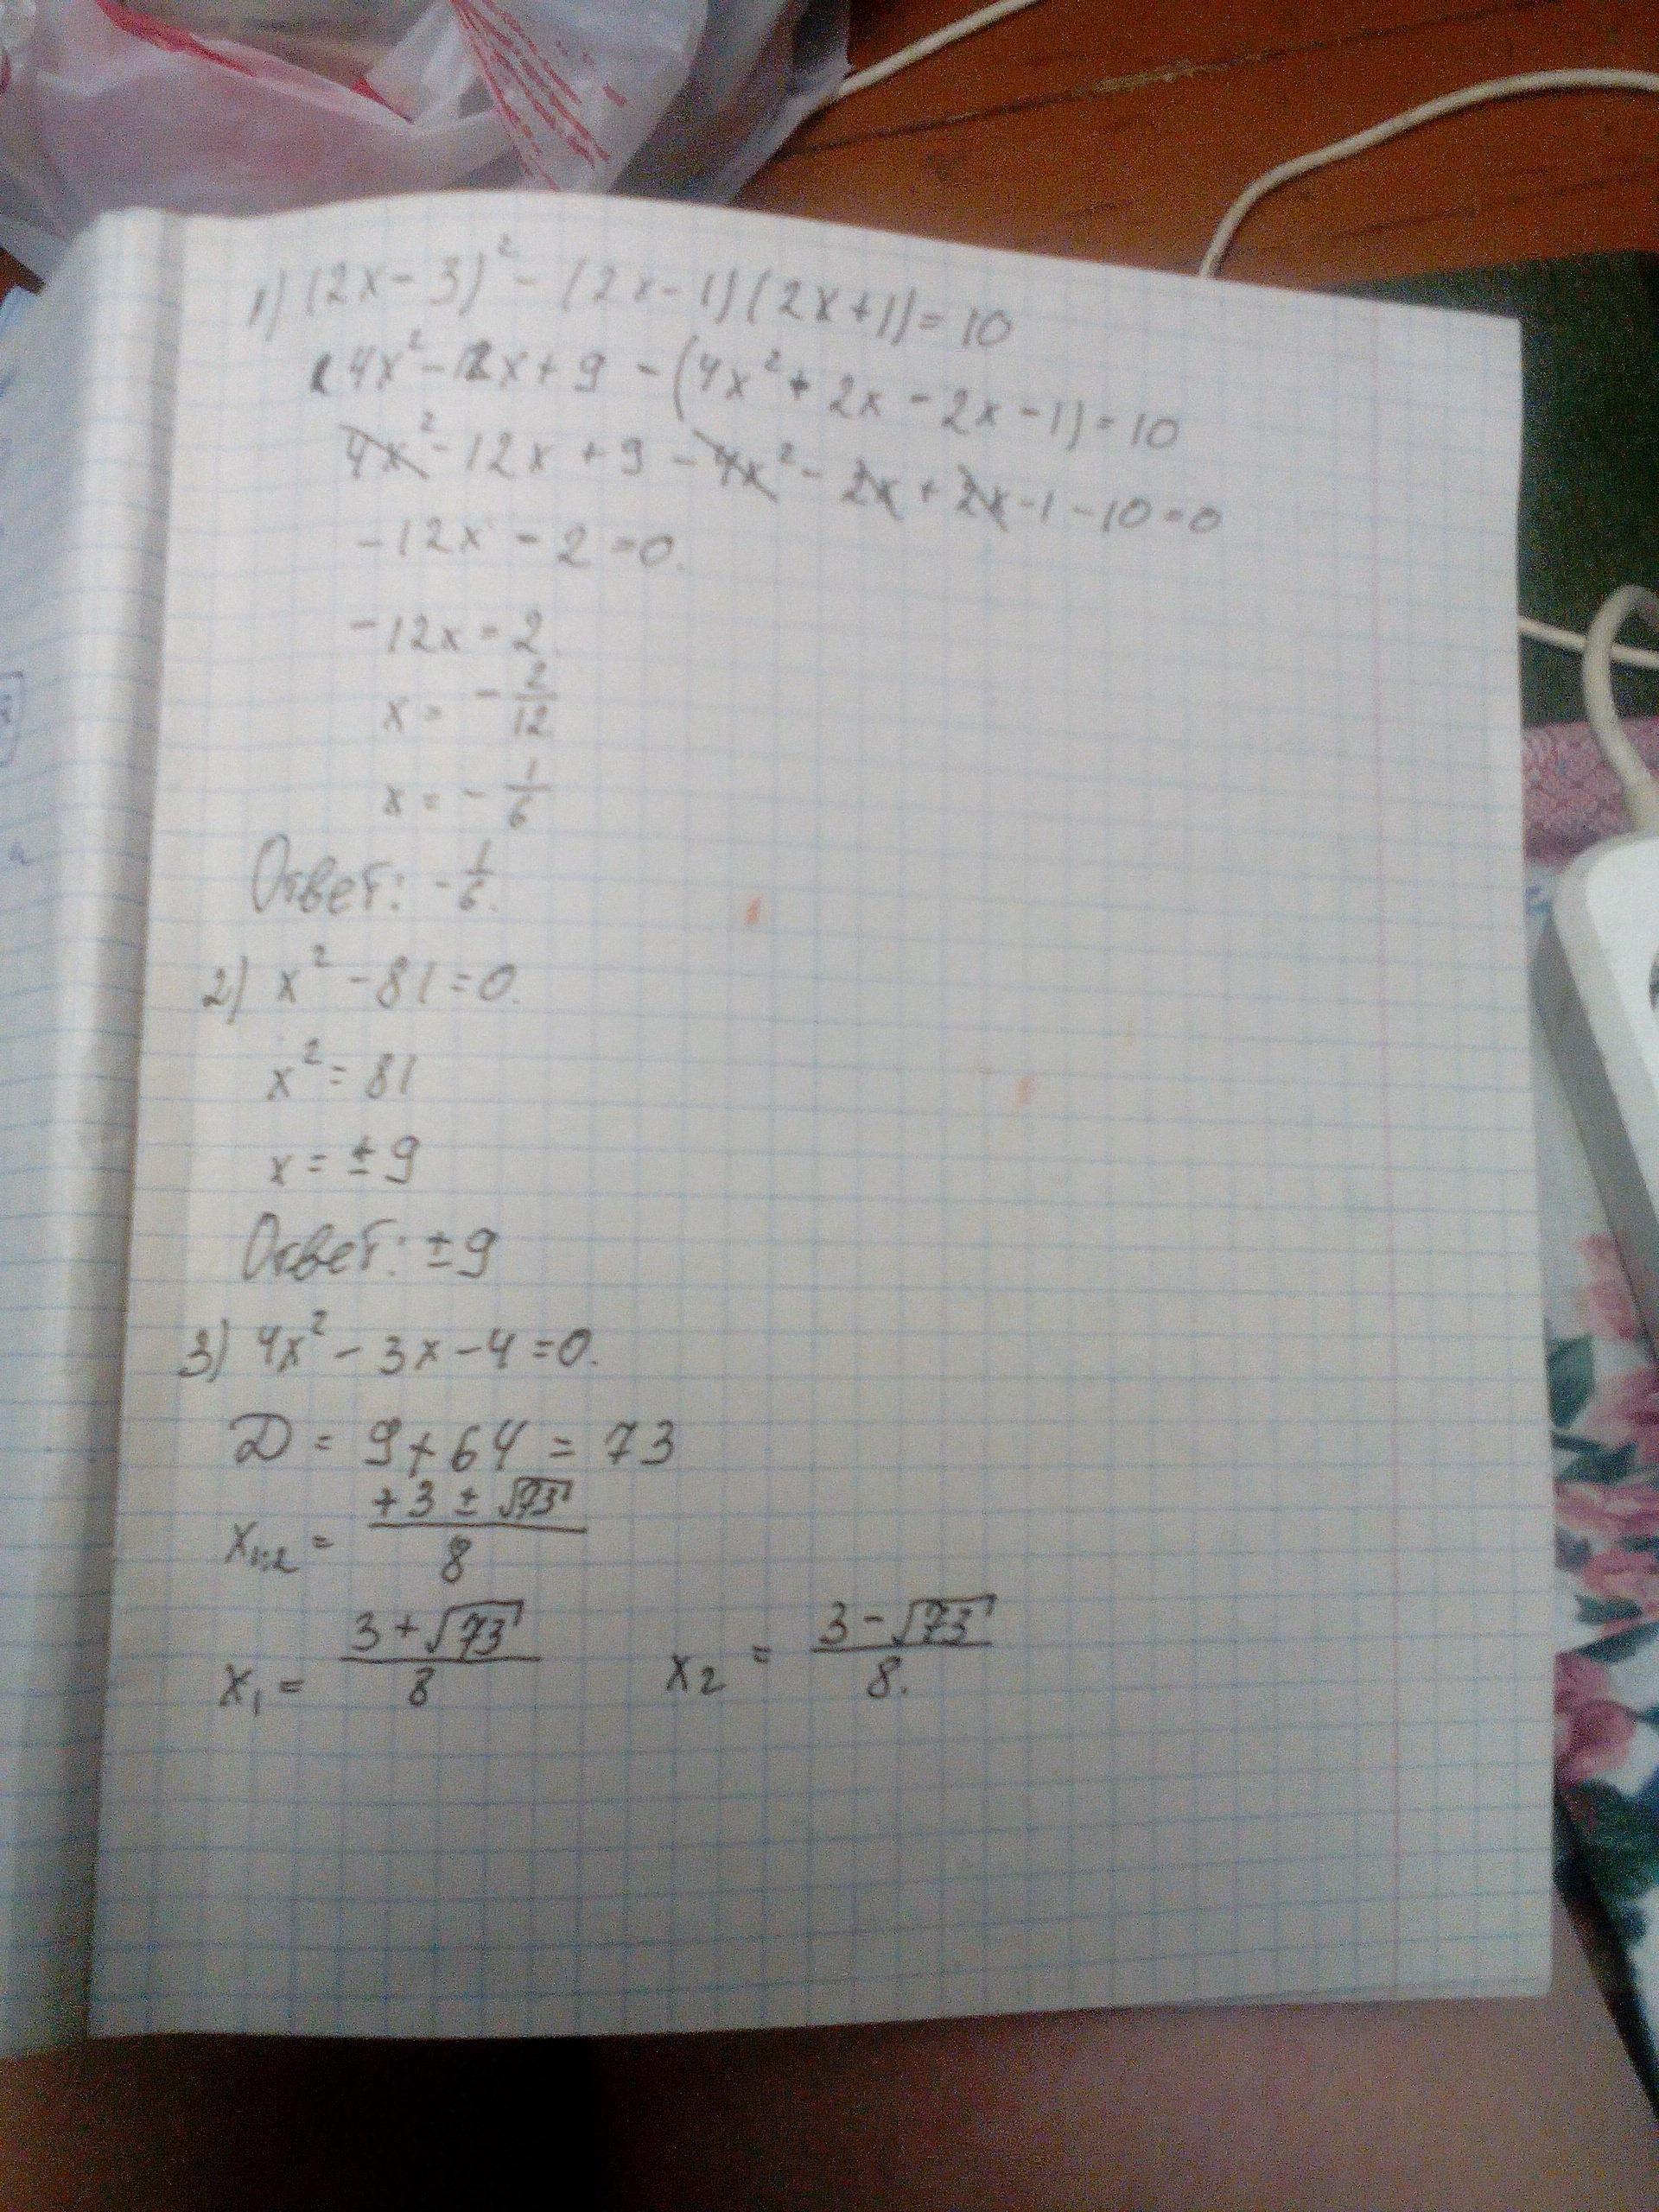 1) (2x-3)² - (2x-1)(2x+1) = 10
4x² - 12x + 9 - (4x² + 2x - 2x - 1) = 10
4x² - 12x + 9 - 4x² - 2x + 2x - 1 - 10 = 0
-12x - 2 = 0.
-12x = 2
x = - 2/12
x = - 1/6
Ответ: - 1/6.
2) x² - 81 = 0.
x² = 81
x = ± 9
Ответ: ± 9
3) 4x² - 3x - 4 = 0.
D = 9 + 64 = 73
x₁,₂ = (+3 ± √73)/8
x₁ = (3 + √73)/8 x₂ = (3 - √73)/8.